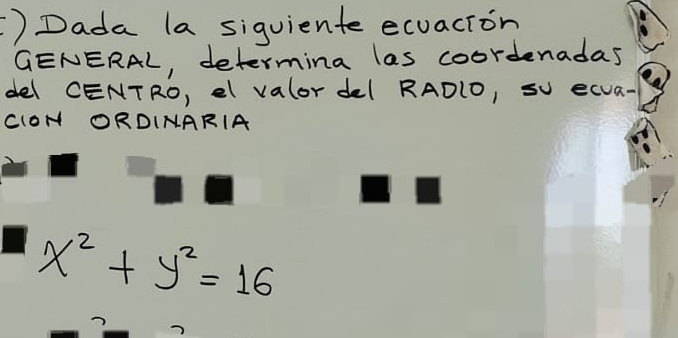 ) Dada la siguiente ecuación
GENERAL, determina las coordenadas
del CENTRO, el valor del RADIO, su ecua-
CION ORDINARIA
x² + y² = 16